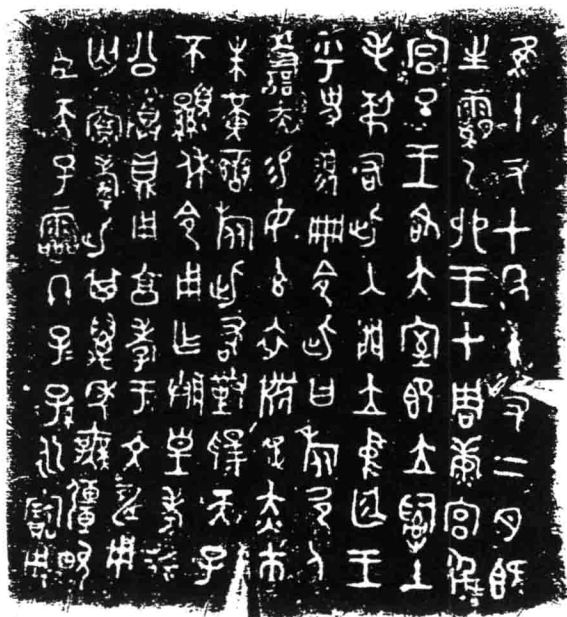 隹十又七年十又二月既
生霸乙卯王才周康宮徲
宮旦王各大室即立𤔲土
毛叔右此入門立中廷王
乎史翏冊令此曰旅邑人
善夫易女玄衣黹屯赤巿
朱黃䜌旅此敢對揚天子
不顯休令用乍朕皇考癸
公尊鼎用享孝于文申用
匄眉壽此其萬年無彊畯
臣天子霝冬子子孫孫永寶用